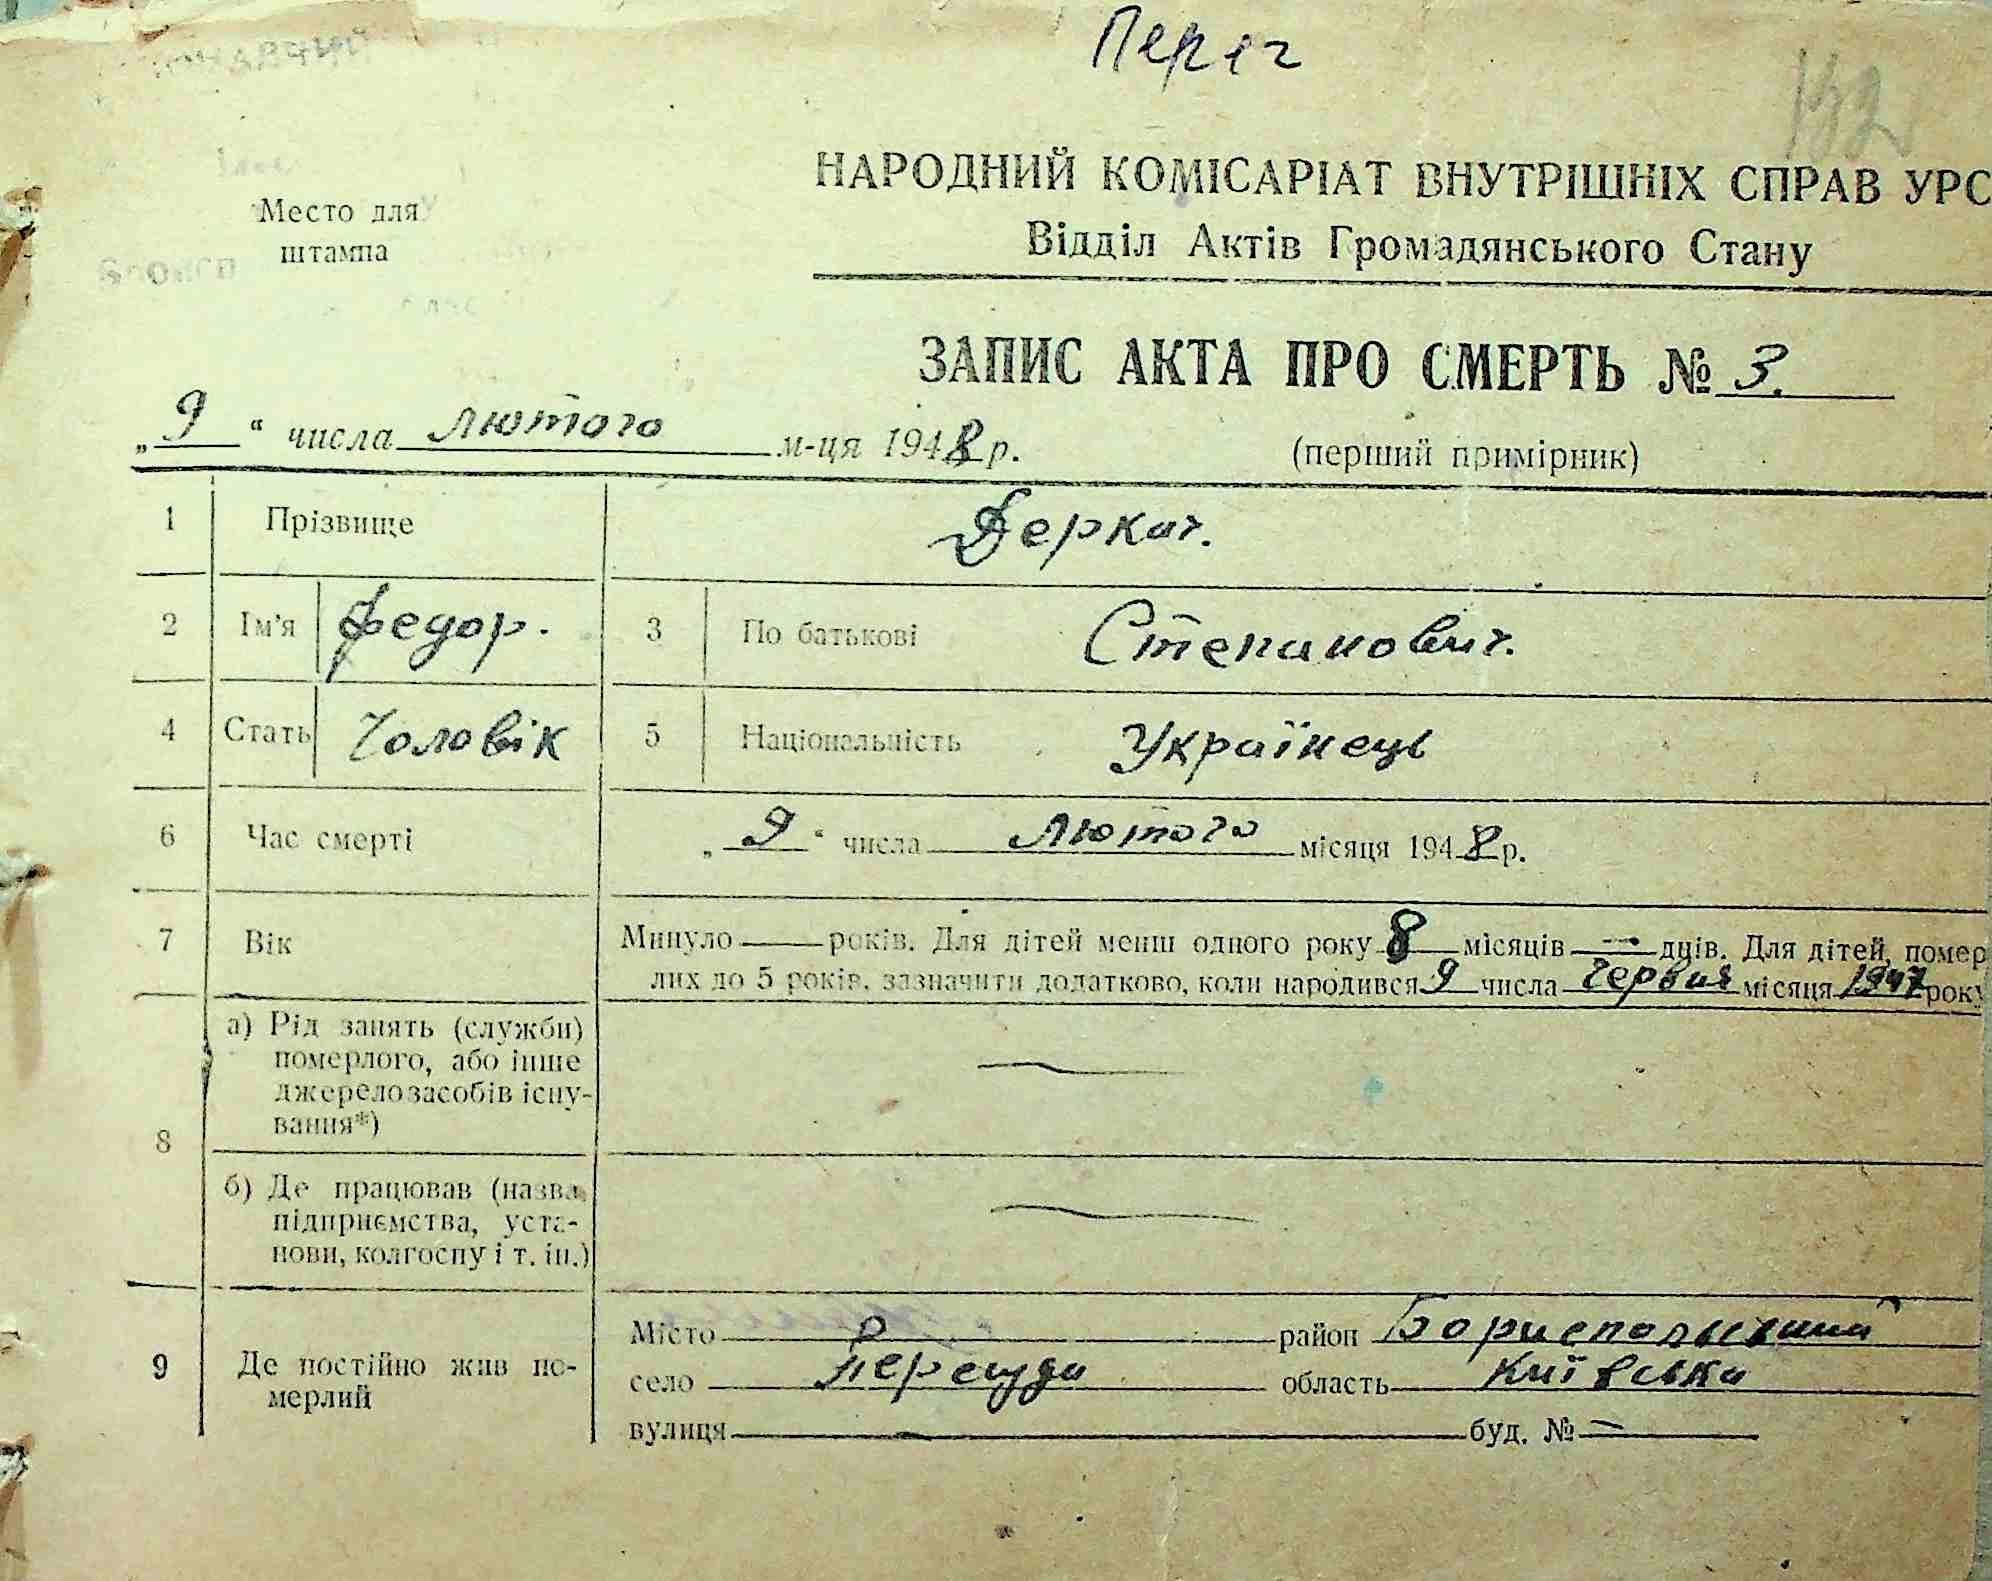 Перег
132
НАРОДНИЙ КОМІСАРІАТ ВНУТРІШНІХ СПРАВ УРС
Место для штампа
Відділ Актів Громадянського Стану
ЗАПИС АКТА ПРО СМЕРТЬ № 3.
„9“ числа лютого м-ця 1948 р.
(перший примірник)
1 Прізвище Деркач.
2 Ім'я Федор. 3 По батькові Степанович.
4 Стать Чоловік 5 Національність Українець
6 Час смерті „9“ числа лютого місяця 1948 р.
7 Вік Минуло — років. Для дітей менш одного року 8 місяців — днів. Для дітей, помер
лих до 5 років, зазначити додатково, коли народився 9 числа червня місяця 1947 року
8 а) Рід занять (служби)
померлого, або інше
джерело засобів існу-
вання*) —
б) Де працював (назва
підприємства, уста-
нови, колгоспу і т. ін.) —
9 Де постійно жив по-
мерлий
Місто район Бориспольський
село область Київська
вулиця — буд. № —